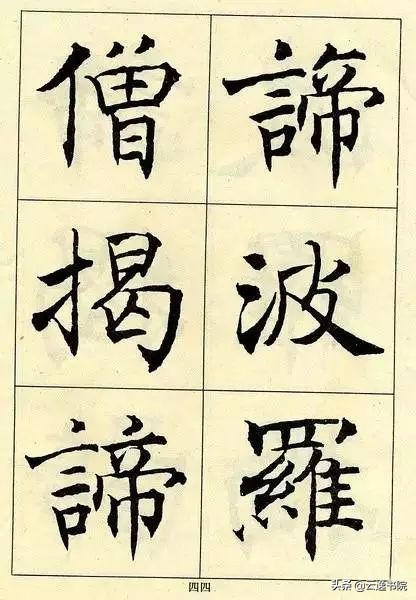 諦波羅
僧揭諦
四四
头条@云隐书院